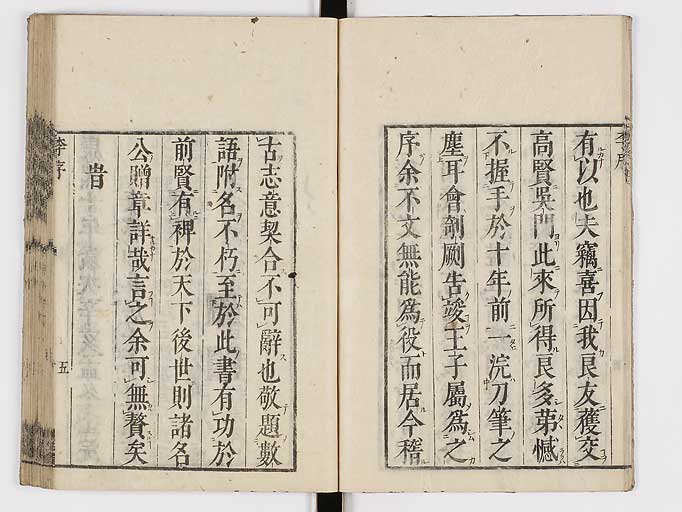 有以也夫竊喜因我良友獲交
高賢吳門此來所得良多第憾
不握手於十年前一浣刀筆之
塵耳會剞劂告竣王子屬為之
序余不文無能為役而居今稽
古志意契合不可辭也敬題數
語附名不朽至於此書有功於
前賢有裨於天下後世則諸名
公贈章詳哉言之余可無贅矣
旹
李序
五